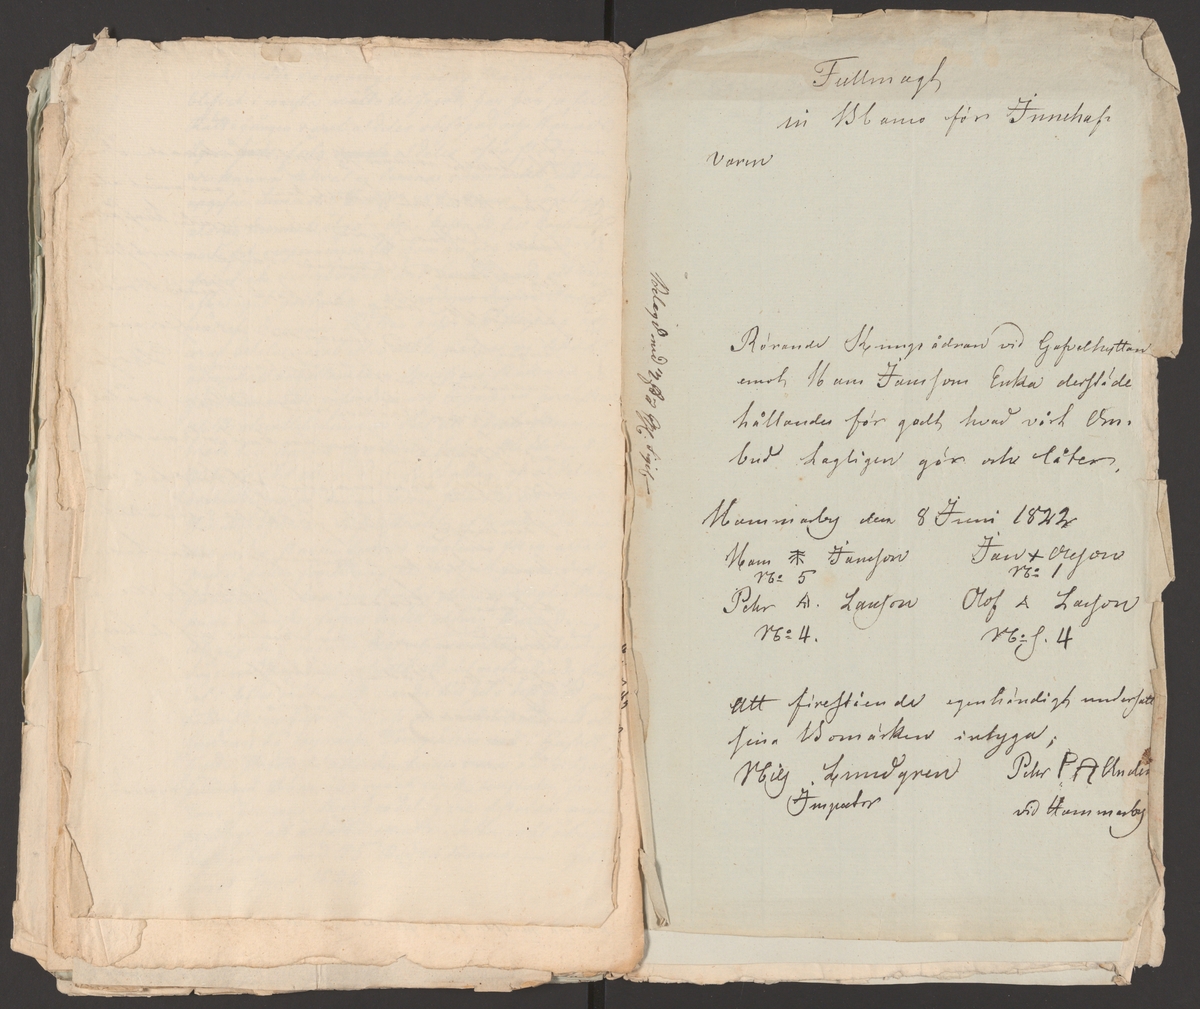 Fullmagt
in Blanco för Innehaf
varen
Rörande Kungsådran vid Gafvelhyttan
emot Hans Janssons Enka derstäde
hållandes för godt hvad vårt Om-
bud lagligen gör och låter.
Hammarby den 8 Juni 1822
Hans Jansson Jan Olsson
No 5 No 1
Pehr Larsson Olof Larsson
No 4. No 4
Att förestående egenhändigt undersatt
sina Bomärken intyga;
Lundgren Pehr PA Ander
Inspector vid Hammarby
Belagd med